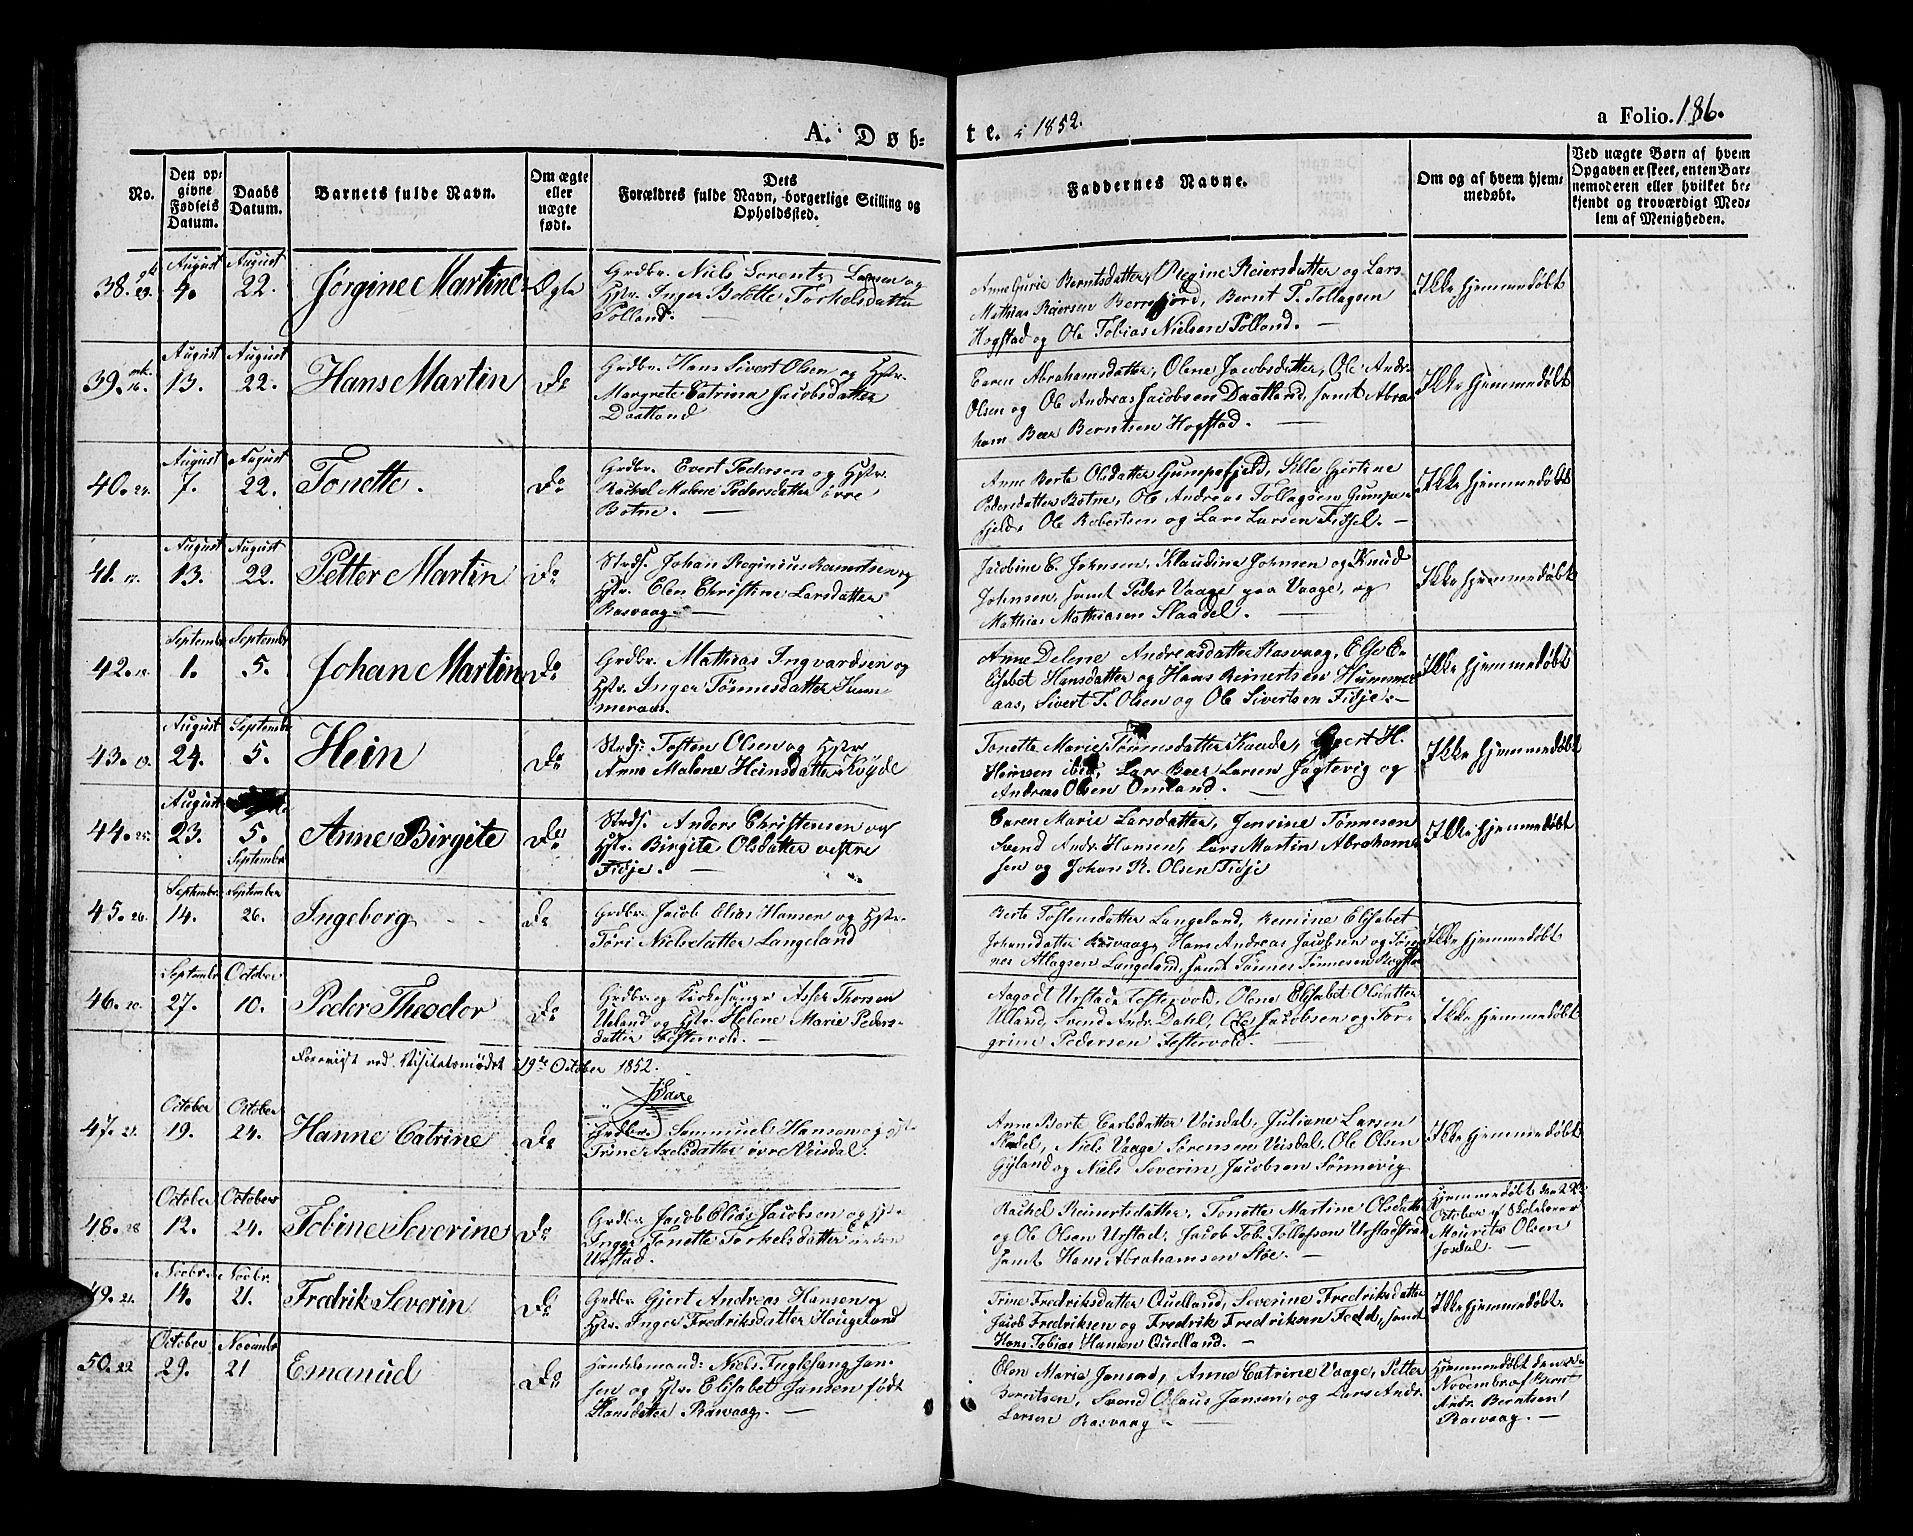 A. Døb-
te. i 1852.
a Folio. 186.
No.
Den op-
givne
Fødsels
Datum.
Daabs
Datum.
Barnets fulde Navn.
Om ægte
eller
uægte
født.
Dets
Forældres fulde Navn, borgerlige Stilling og
Opholdssted.
Faddernes Navne.
Om og af hvem hjem-
medøbt.
Ved uægte Børn af hvem
Opgaven er skeet, enten Bar-
nemoderen eller hvilket be-
kjendt og troværdigt Med-
lem af Menigheden.
38.
August
4.
August
22.
Jørgine Martine
Ægte
Grdbr. Niels Lorentz Larsen og
Hstr. Inger Bolette Torkelsdatter
Tolland.
Anne Gurie Berntsdatter, Regine Reiersdatter og Lars
Mathias Reiersen Berrefjord, Bernt T. Tollagsen
Hogstad og Ole Tobias Nielsen Tolland.
Ikke hjemmedøbt
39.
August
13.
August
22.
Hans Martin
Do
Grdbr. Hans Sivert Olsen og Hstr.
Margrete Catrina Jacobsdatter
Daatland
Caren Abrahamsdatter, Olene Jacobsdatter, Ole Andr.
Olsen og Ole Andreas Jacobsen Daatland, samt Abra-
ham Beer Berntsen Hogstad.
Ikke hjemmedøbt
40.
August
7.
August
22.
Tonette.
Do
Grdbr. Evert Pedersen og Hstr.
Rachel Malene Pedersdatter øvre
Botne.
Anne Berte Olsdatter Gumpefjeld, Sille Gjertine
Pedersdatter Botne, Ole Andreas Tollagsen Gumpe-
fjeld, Ole Robertsen og Lars Larsen Fidsel.
Ikke hjemmedøbt
41.
August
13.
August
22.
Petter Martin
Do
Strds. Johan Reginius Berntsen og
Hstr. Elen Christine Larsdatter
Rasvaag.
Jacobine C. Johnsen, Klaudine Johnsen og Knud
Johnsen, samt Peder Vaage paa Vaage, og
Mathias Mathiasen Slaadel.
Ikke hjemmedøbt
42.
Septembr
1.
Septembr
5.
Johan Martin
Do
Grdbr. Mathias Ingvardsen og
Hstr. Inger Tønnesdatter Hum-
meraas.
Anne Delene Andreasdatter Rasvaag, Else E-
lisabet Hansdatter og Hans Reinertsen Hummer-
aas, Sivert T. Olsen og Ole Sivertsen Fidje.
Ikke hjemmedøbt
43.
August
24.
Septembr
5.
Hein
Do
Strds. Tosten Olsen og Hstr
Anne Malene Heinsdatter Røyde
Tonette Marie Tønnesdatter Kaade, Gjert H.
Heinsen ibid, Lars Beer Larsen Jagtevig og
Andreas Olsen Omland.
Ikke hjemmedøbt
44.
August
23.
5.
September
Anne Birgite
Do
Strds. Anders Christensen og
Hstr. Birgite Olsdatter vestre
Fidje.
Caren Marie Larsdatter, Jensine Tønnesen
Svend Andr. Hansen, Lars Martin Abraham-
sen og Johan R. Olsen Fidje
Ikke hjemmedøbt
45. 26.
Septembr.
14.
September
26.
Ingeborg
Do
Grdbr. Jacob Elias Hansen og Hstr.
Tøri Nielsdatter Langeland
Berte Tostensdatter Langeland, Remine Elisabet
Johansdatter Rasvaag, Hans Andreas Jacobsen og Tøn-
nes Atlagsen Langeland, samt Tønnes Tønnesen Rogstad
Ikke hjemmedøbt
46. 20.
Septembr
27.
October
10.
Peder Theodor
Do
Grdbr. og Kirkesangr Asser Thorsen
Ueland og Hstr. Helene Marie Peders-
datter Festervold.
Aagodt Urstad, Festervold, Olene Elisabet Olsdatter
Ulland, Svend Andr. Dahl, Ole Jacobsen og Tor-
grim Pedersen Festervold.
Ikke hjemmedøbt
Foreviist ved Visitatsmødet 19de October 1852.
47. 21.
October
19.
October
24.
Hanne Catrine
Do
Grdbr. Sammuel Hansen og Hstr
Trine Axelsdatter øvre Veisdal.
Anne Berte Carlsdatter Veisdal, Juliane Larsen
Niels Vaage Sørensen Veisdal, Ole Olsen
Gyland og Niels Severin Jacobsen Sønnevig
Ikke hjemmedøbt
48. 28
October
12.
October
24.
Tobine Severine
Do
Grdbr. Jacob Elias Jacobsen og Hstr
Inger Tonette Torkelsdatter neden
Urstad.
Rachel Reinertsdatter, Tonette Martine Olsdatter
og Ole Olsen Urstad, Jacob Tob. Tollefsen Urstadstrad
samt Hans Abrahamsen Støe.
Hjemmedøbt den
October af Skolelærer
Mourits Olsen
Josdal.
49. 21.
Novbr.
14.
Novbr.
21.
Fredrik Severin
Do
Grdbr. Gjert Andreas Hansen og
Hstr. Inger Fredriksdatter Hougeland
Trine Fredriksdatter Quelland, Severine Fredriksdatter
Jacob Fredriksen og Fredrik Fredriksen Fedd, samt
Hans Tobias Hansen Quelland.
Ikke hjemmedøbt.
50. 22.
October
29.
Novembr
21
Emanuel
Do
Handelsmand: Niels Fuglesang Jan-
sen og Hstr. Elisabet Jansen født
Hansdatter Rasvaag.
Elen Marie Jansen, Anne Catrine Vaage, Petter
Berntsen, Svend Olaus Jansen, og Lars Andr.
Larsen Rasvaag
Hjemmedøbt den
Novembr af Bernt
Andr. Berntsen
Rasvaag.